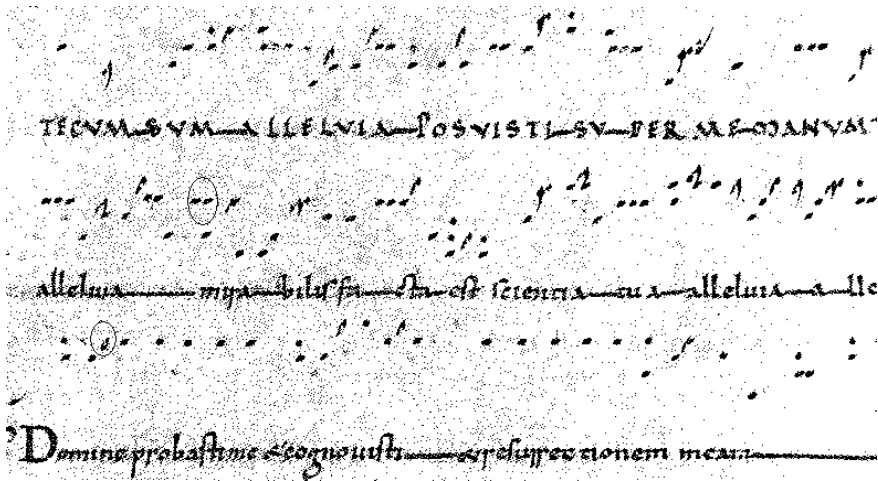 TECVM SVM ALLELVIA POSVISTI SVPER ME MANVM
alleluia mira bilis facta est scientia tua alleluia alle
Domine probasti me & cognouisti & resurrectionem meam